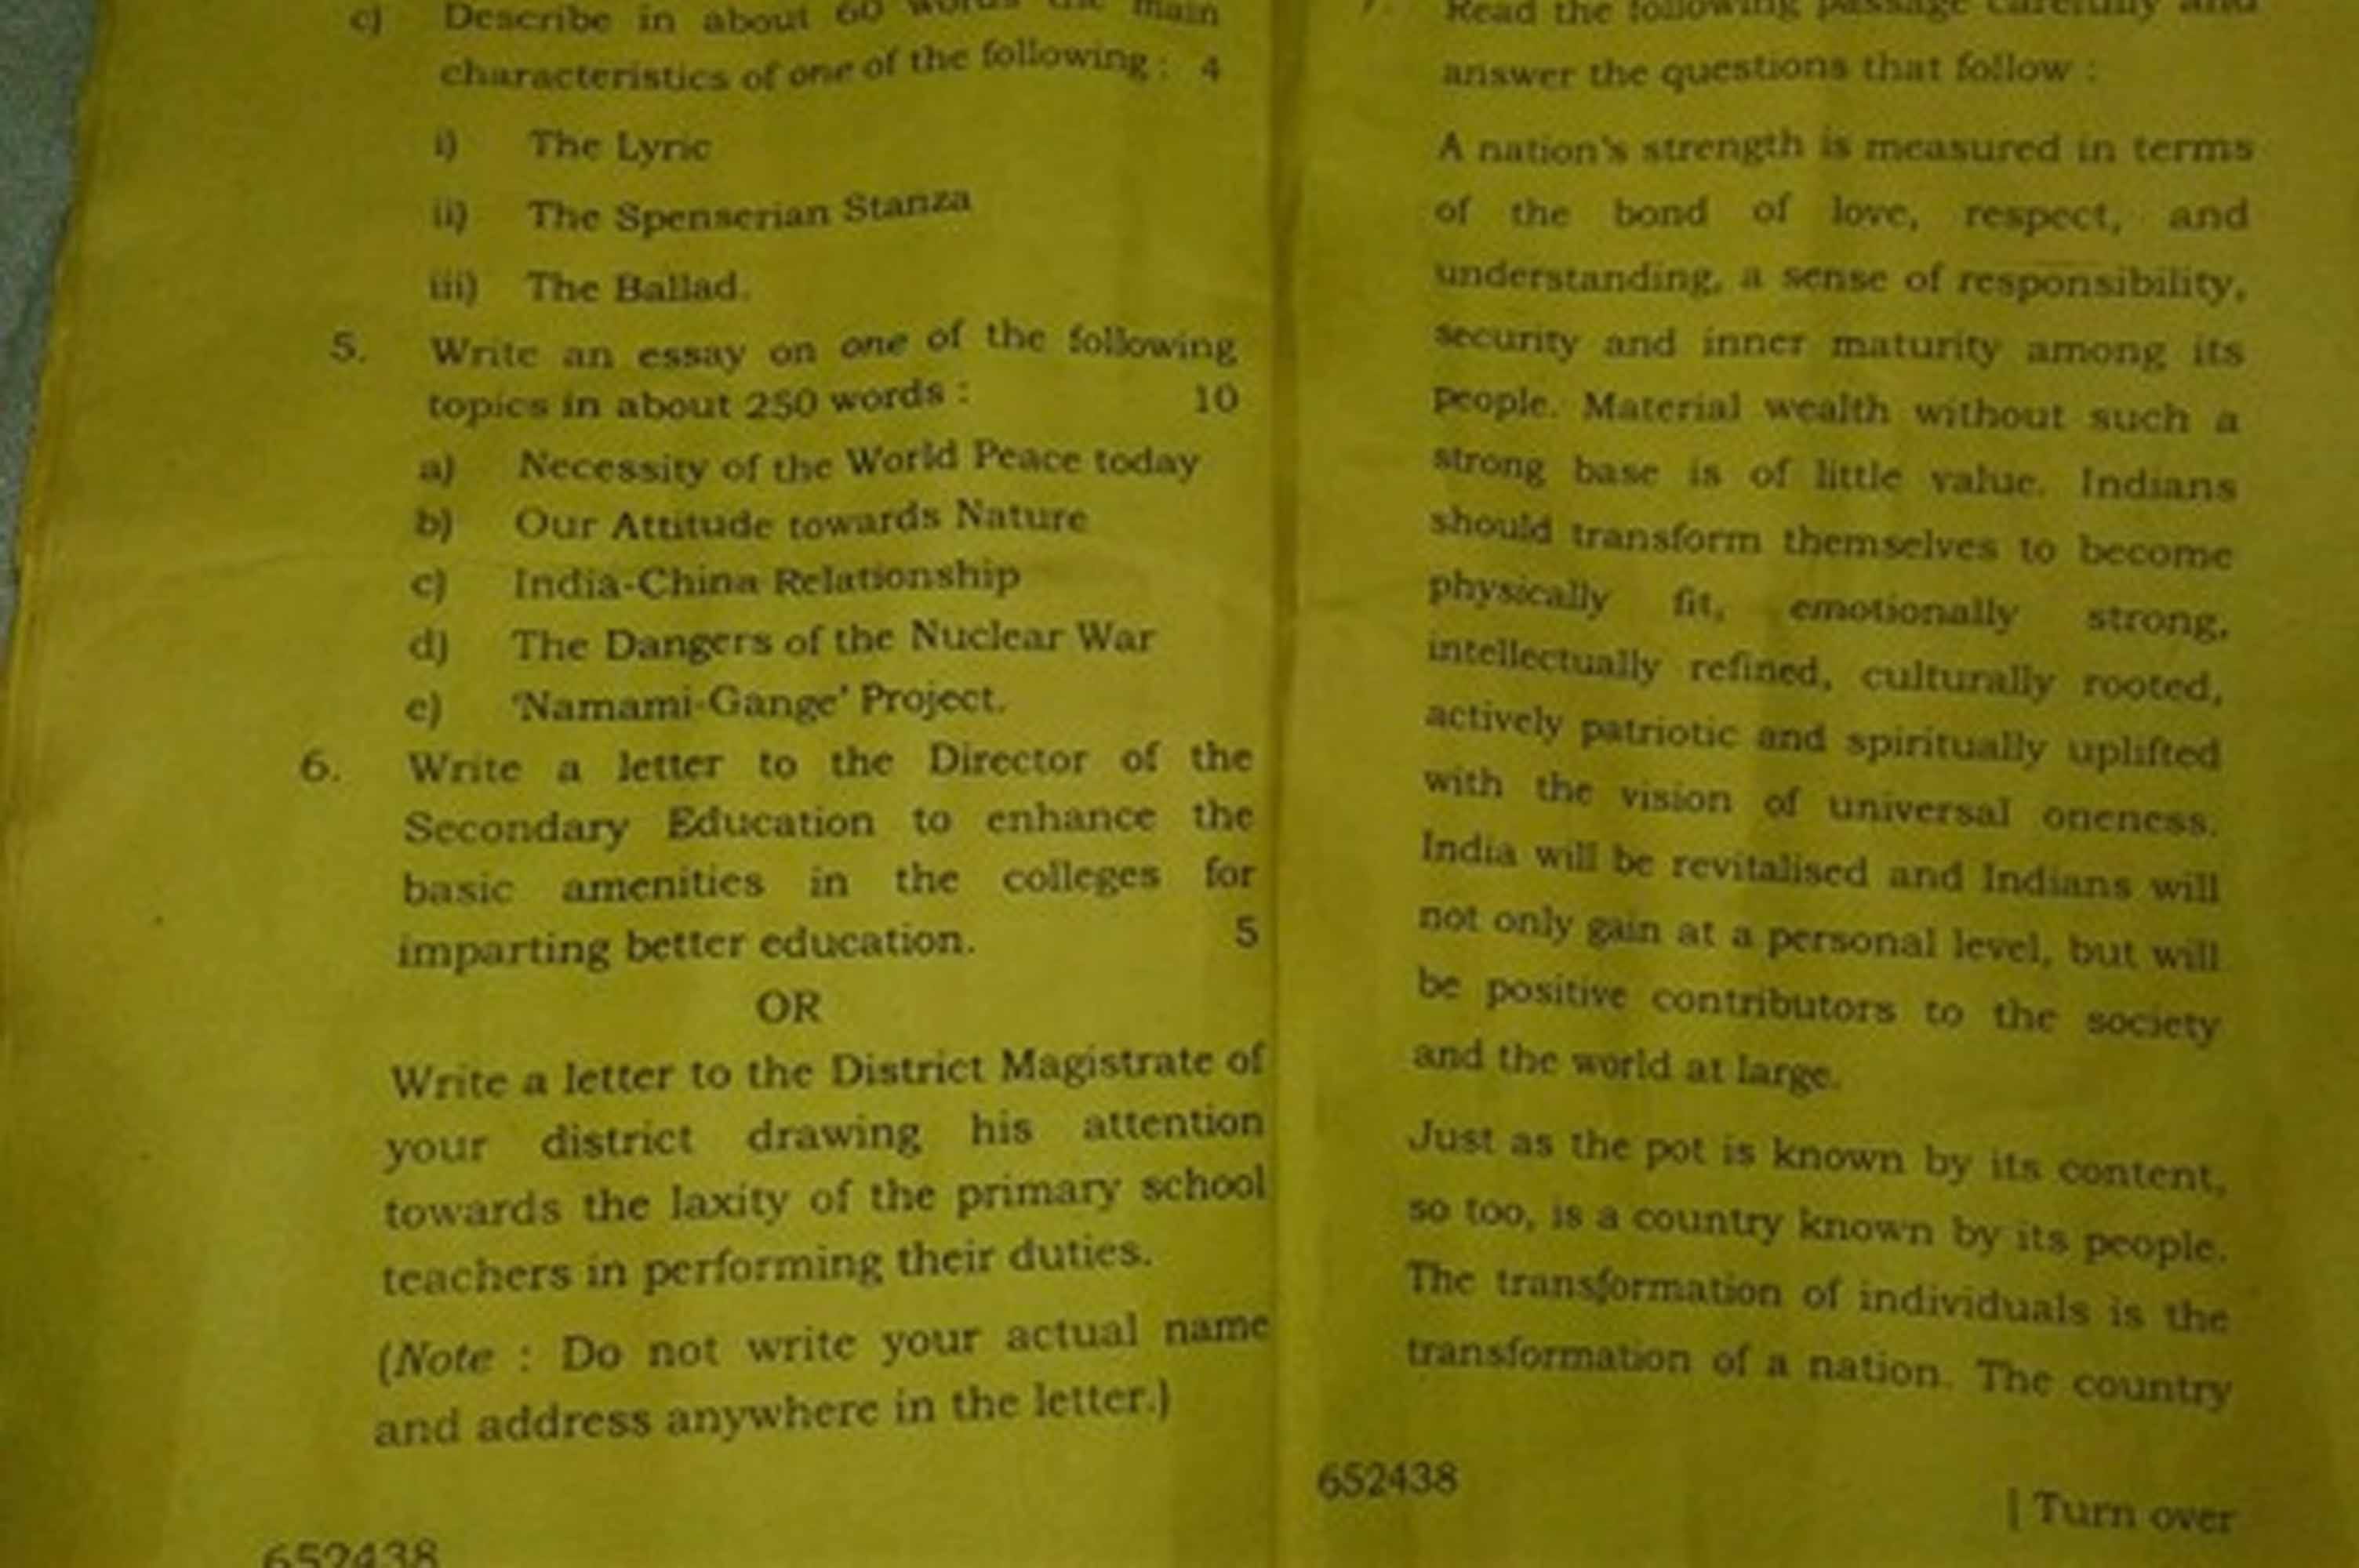 c) Describe in about 60 words the main
characteristics of one of the following : 4
i) The Lyric
ii) The Spenserian Stanza
iii) The Ballad.
5. Write an essay on one of the following
topics in about 250 words : 10
a) Necessity of the World Peace today
b) Our Attitude towards Nature
c) India-China Relationship
d) The Dangers of the Nuclear War
e) 'Namami-Gange' Project.
6. Write a letter to the Director of the
Secondary Education to enhance the
basic amenities in the colleges for
imparting better education. 5
OR
Write a letter to the District Magistrate of
your district drawing his attention
towards the laxity of the primary school
teachers in performing their duties.
(Note : Do not write your actual name
and address anywhere in the letter.)
652438
7. Read the following passage carefully and
answer the questions that follow :
A nation's strength is measured in terms
of the bond of love, respect, and
understanding, a sense of responsibility,
security and inner maturity among its
people. Material wealth without such a
strong base is of little value. Indians
should transform themselves to become
physically fit, emotionally strong,
intellectually refined, culturally rooted,
actively patriotic and spiritually uplifted
with the vision of universal oneness.
India will be revitalised and Indians will
not only gain at a personal level, but will
be positive contributors to the society
and the world at large.
Just as the pot is known by its content,
so too, is a country known by its people.
The transformation of individuals is the
transformation of a nation. The country
652438
[ Turn over